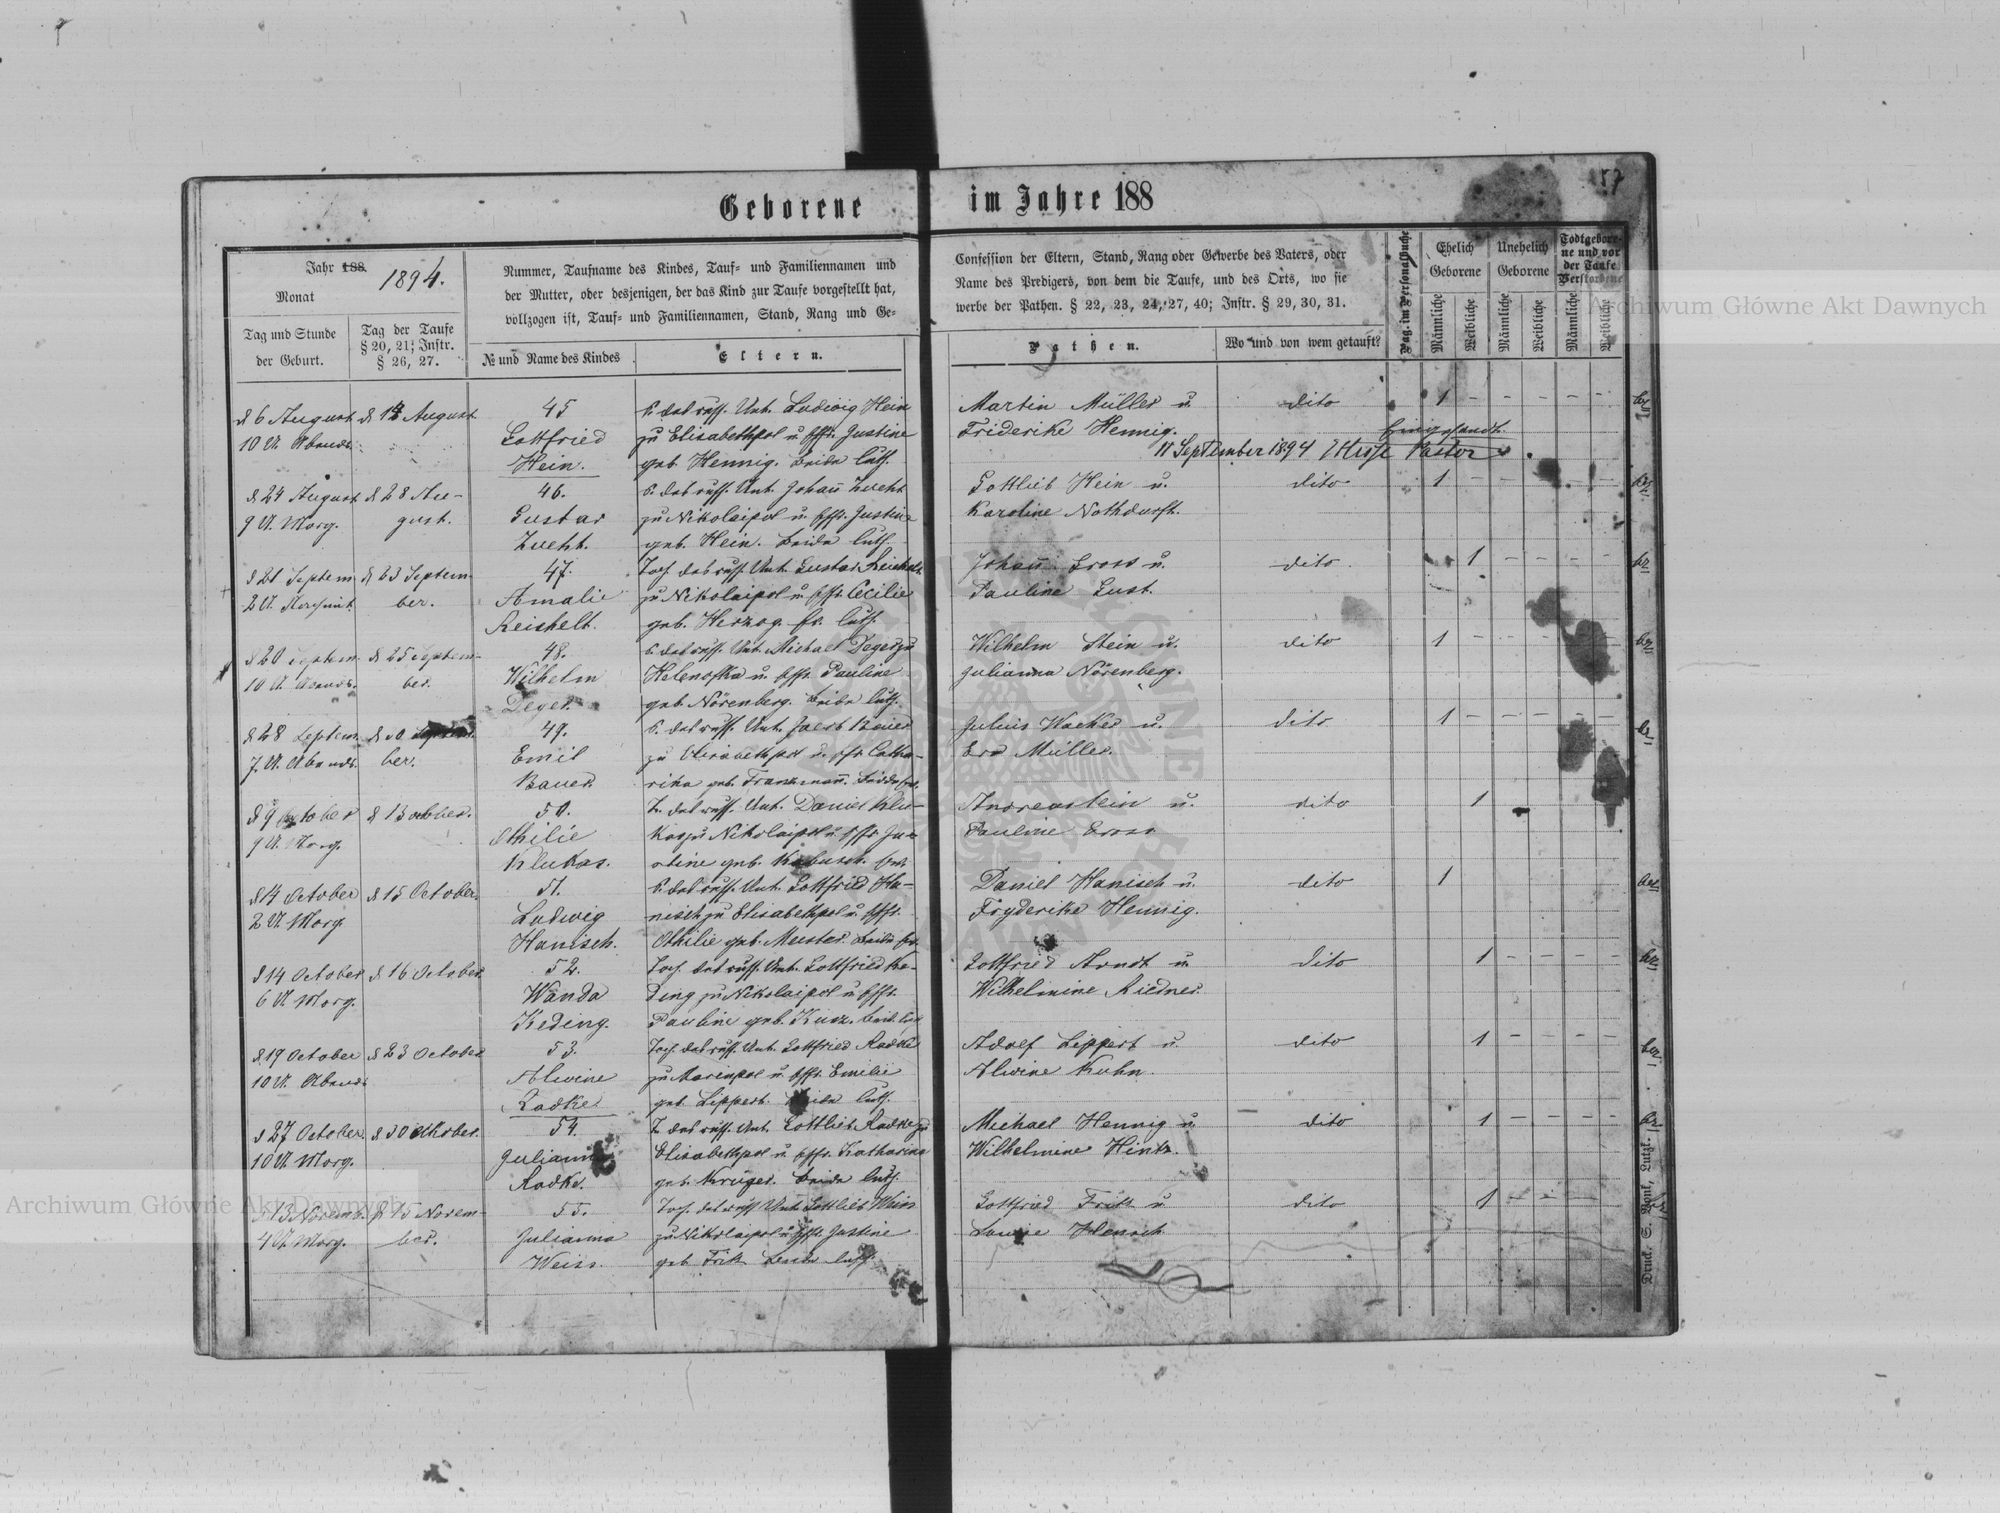 57
Geborene im Jahre 188
Jahr 188. 1894.
Monat
Tag und Stunde
der Geburt.
Tag der Taufe
§ 20, 21; Instr.
§ 26, 27.
Nummer, Taufname des Kindes, Tauf- und Familiennamen und
der Mutter, oder desjenigen, der das Kind zur Taufe vorgestellt hat,
vollzogen ist, Tauf- und Familiennamen, Stand, Rang und Ge-
№ und Name des Kindes
Eltern.
Confession der Eltern, Stand, Rang oder Gewerbe des Vaters, oder
Name des Predigers, von dem die Taufe, und des Orts, wo sie
werbe der Pathen. § 22, 23, 24, 27, 40; Instr. § 29, 30, 31.
Pathen.
Wo und von wem getauft?
Pag. im Personalbuche
Ehelich
Geborene
Unehelich
Geborene
Todtgebore-
ne und vor
der Taufe
Verstorbene
Männliche
Weibliche
Männliche
Weibliche
Männliche
Weibliche
d 6 August d 14 August 45 S. des russ. Unt. Ludwig Hein Martin Müller u. dito 1
10 U. Abends. Gottfried zu Elisabethpol u. Justine Friderike Hennig.
Hein. geb. Hennig. Beide luth. 11 September 1894 Pastor
d 24 August d 28 Au- 46. S. des russ. Unt. Johan Zucht Gottlieb Hein u. dito 1
9 U. Morg. gust. Gustav zu Nikolaipol u. Justine Karoline Nothdurft.
Zucht. geb. Hein. Beide luth.
d 21 Septem d 23 Septem- 47. Toch. des russ. Unt. Gustav Reichelt Johan Gross u. dito 1
2 U. ber. Amalie zu Nikolaipol u. Cecilie Pauline Lust.
Reichelt. geb. Herzog. luth.
d 20 Septem d 25 Septem- 48. S. des russ. Unt. Michael Deger zu Wilhelm Stein u. dito 1
10 U. Abends. ber. Wilhelm Helenofka u. Pauline Julianna Nörenberg.
Deger. geb. Nörenberg. Beide luth.
d 28 Septem 49. S. des russ. Unt. Jacob Bauer Julius Wacker u. dito 1
7 U. Abends. ber. Emil zu Elisabethpol u. Catha- Eva Müller.
Bauer. rina geb. Beide
d 9 October d 13 october. 50. T. des russ. Unt. Daniel Klu- Andreas Stein u. dito 1
9 U. Morg. Othilie kas zu Nikolaipol u. Pauline Gross
Klukas. geb.
d 14 October d 15 October. 51. S. des russ. Unt. Gottfried Ha- Daniel Hanisch u. dito 1
2 U. Morg. Ludwig nisch zu Elisabethpol u. Fryderike Hennig.
Hanisch. Othilie geb. Meister. Beide
d 14 October d 16 October 52. Toch. des russ. Unt. Gottfried Ke- Gottfried Arndt u dito 1
6 U Morg. Wanda ding zu Nikolaipol u. Wilhelmine Riedner.
Keding. Pauline geb. Kurz.
d 19 October d 23 October 53. Toch. des russ. Unt. Gottfried Radke Adolf Lippert u dito 1
10 U. Abends Alwine zu Marinpol u. Emilie Alwine Kuhn.
Radke. geb. Lippert. Beide luth.
d 27 October d 30 October. 54. T. des russ. Unt. Gottlieb Radke zu Michael Hennig u. dito 1
10 U. Morg. Julianna Elisabethpol u Katharina Wilhelmine Hintz.
Radke. geb. Krüger. Beide luth.
d 13 Novemb. d 15 Novem- 55. Toch. des russ. Unt. Gottlieb Weiss Gottfried Frik u dito 1
4 U. Morg. ber. Julianna zu Nikolaipol u. Justine Louise
Weiss. geb. Frik Beide luth.
Druck. S. Bont, Lutzk.
Archiwum Główne Akt Dawnych
Archiwum Główne Akt Dawnych